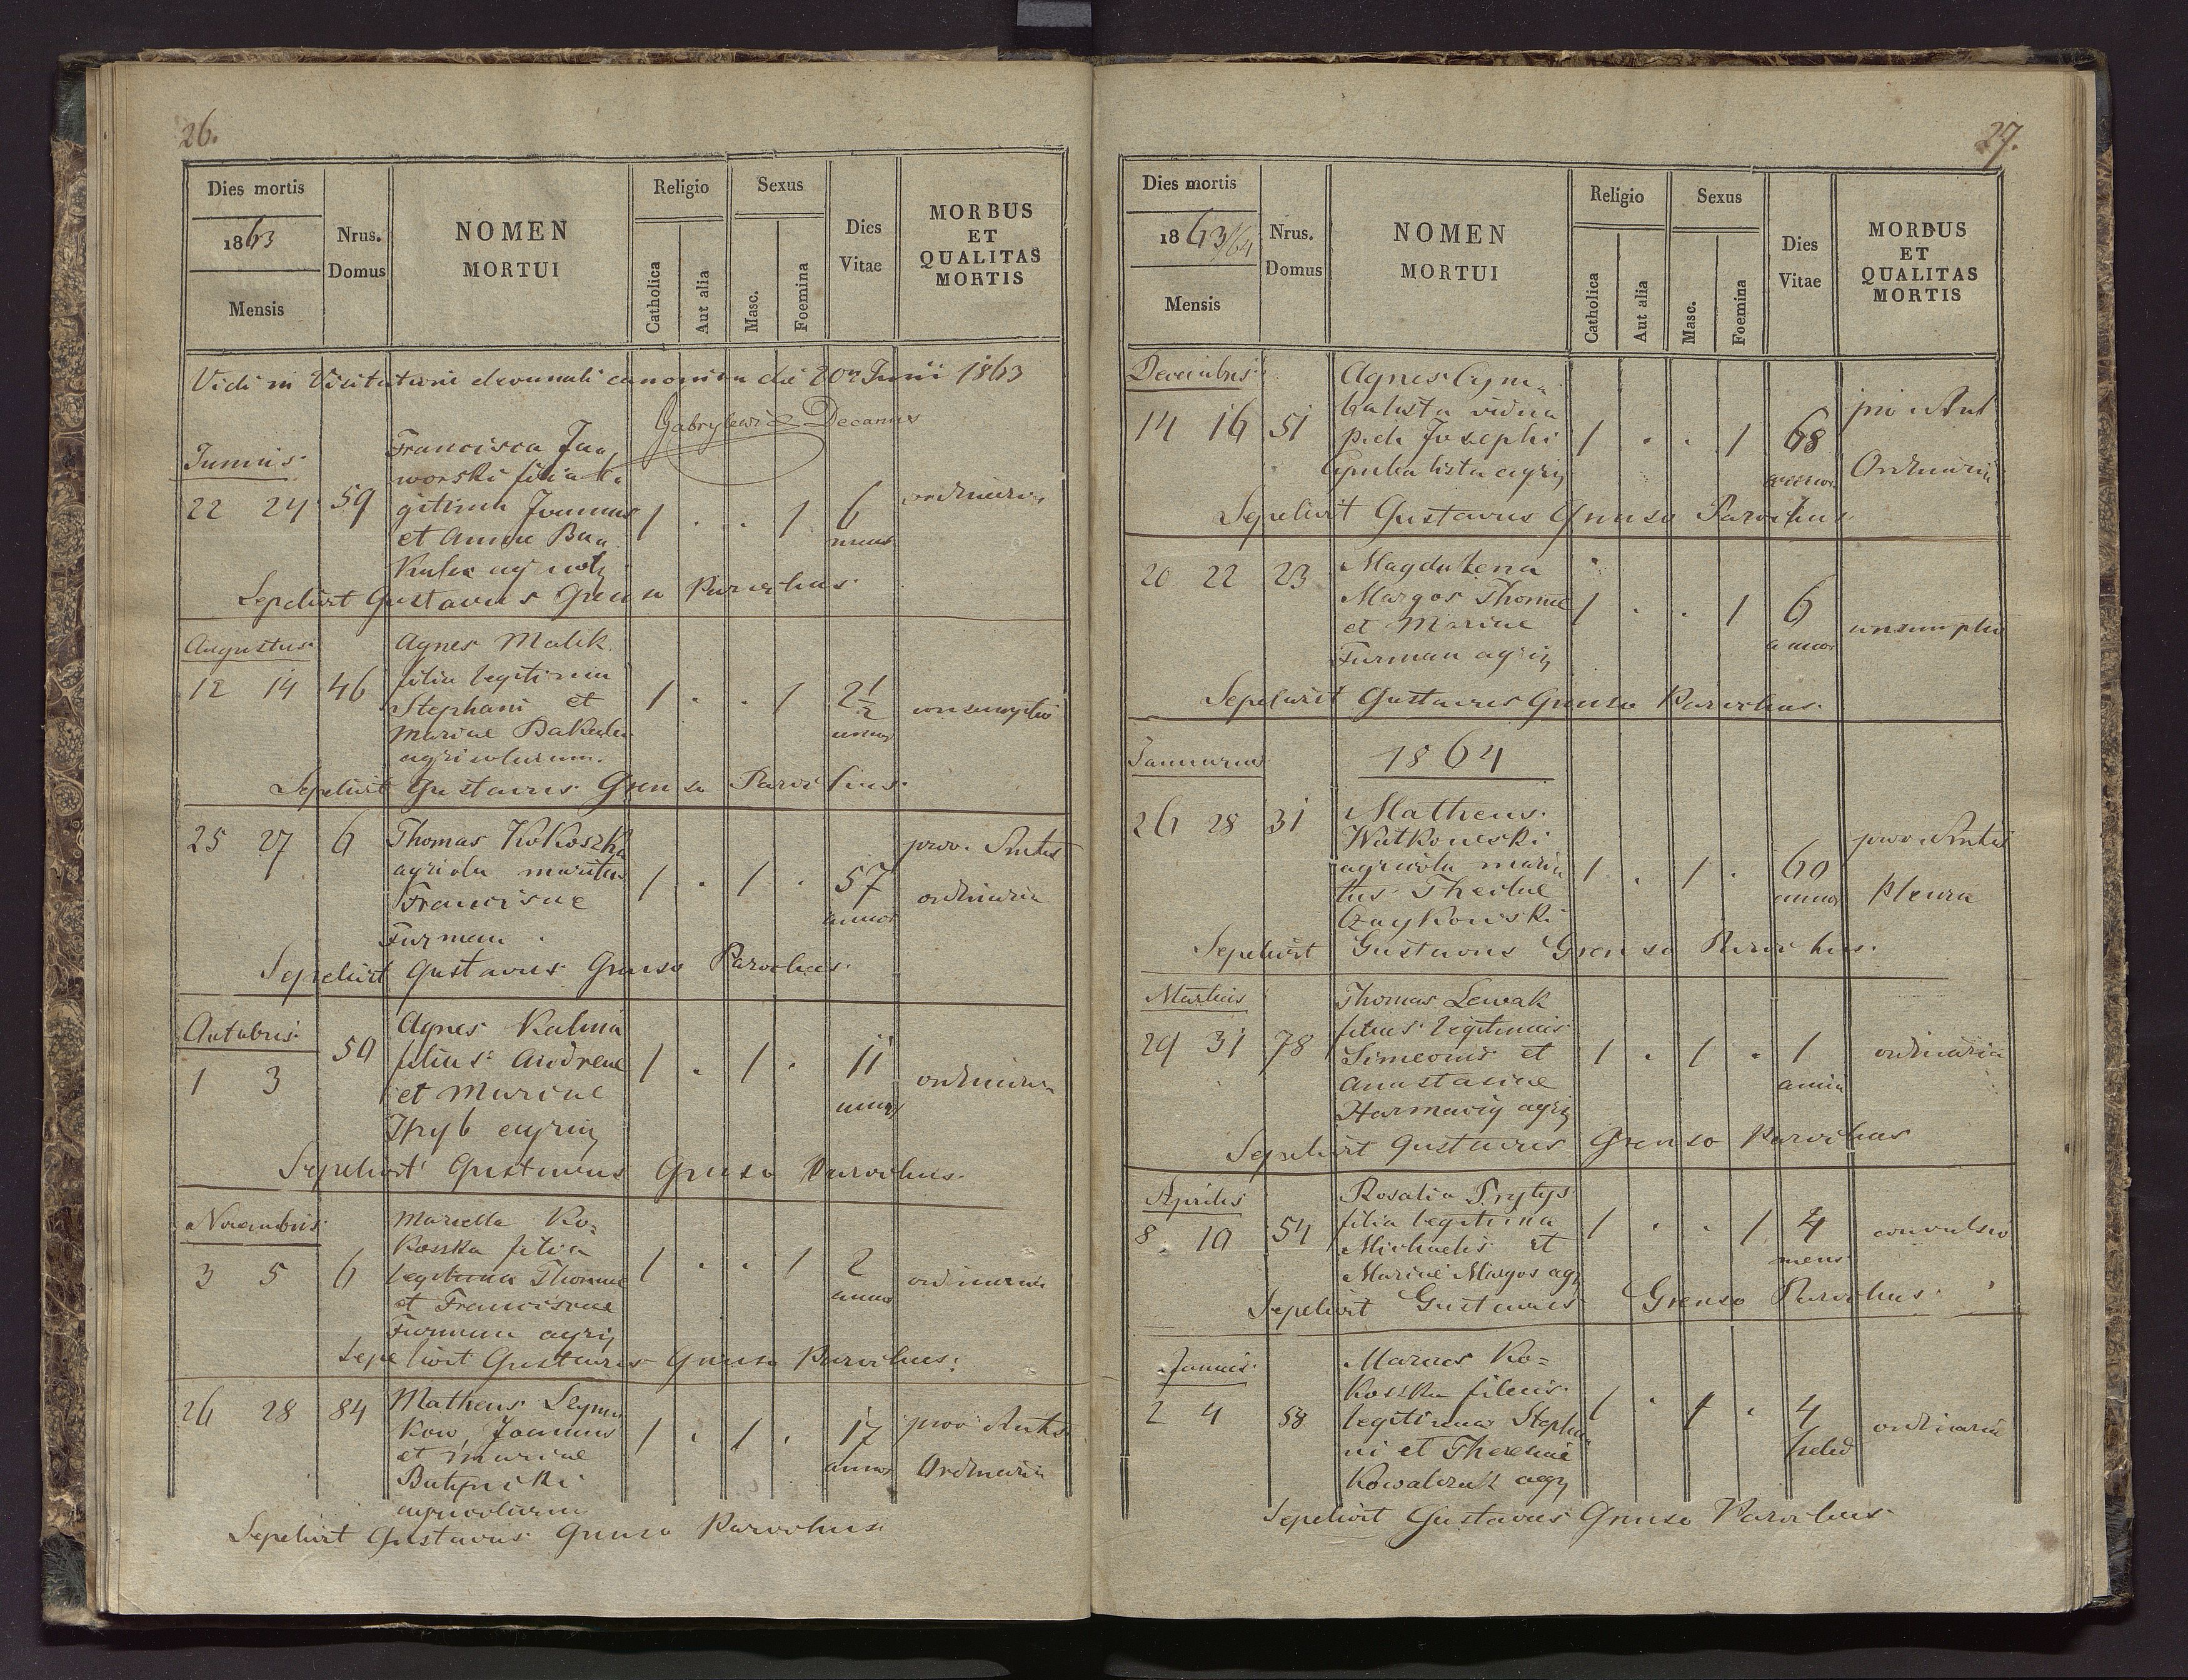 26.
Dies mortis
1863
Mensis
Nrus.
Domus
NOMEN
MORTUI
Religio
Catholica
Aut alia
Sexus
Masc.
Foemina
Dies
Vitae
MORBUS
ET
QUALITAS
MORTIS
Vidi in Visitatione decanali canonica die 20 Junii 1863
Gabrylewicz Decanus
Junius
22 24 59
Francisca Ja
worski filia le
gitima Joannis
et Annae Ba
Kula agricol
1 . . 1 6
ordinaria
Sepelivit Gustavus Grenso Parochus
Augustus
12 14 46
Agnes Malik
filia legitima
Stephani et
Mariae Bakula
agricolarum.
1 . . 1 2 1/2
annor
consumptio
Sepelivit Gustavus Grenso Parochus
25 27 6
Thomas KoKoszka
agricola maritus
Franciscae
Furman
1 . 1 . 57
annor
ordinaria
Sepelivit Gustavus Grenso Parochus
Octobris
1 3 59
Agnes Kalina
filius Andreae
et Mariae
Hryb
1 . 1 . 11
annor
ordinaria
Sepelivit Gustavus Grenso Parochus
Novembris
3 5 6
Marcella Ko=
koszka filia
legitima Thomae
et Franciscae
Furman
1 . . 1 2
annor
ordinaria
Sepelivit Gustavus Grenso Parochus
26 28 84
Matheus
Kow, Joannis
et Mariae
agricolarum
1 . 1 . 17
annor
Ordinaria
Sepelivit Gustavus Grenso Parochus
27.
Dies mortis
1863/64
Mensis
Nrus.
Domus
NOMEN
MORTUI
Religio
Catholica
Aut alia
Sexus
Masc.
Foemina
Dies
Vitae
MORBUS
ET
QUALITAS
MORTIS
Decembris
14 16 51
Agnes Cym
balista vidua
p. d. Josephi
Cymbalista
1 . . 1 68
annor
Ordinaria
Sepelivit Gustavus Grenso Parochus
20 22 23
Magdalena
Margos Thomae
et Mariae
Furman
1 . . 1 6
annor
consumptio
Sepelivit Gustavus Grenso Parochus
Januarius
1864
26 28 31
Matheus
Watkowski
agricola mari
tus Theclae
Czaykowski
1 . 1 . 60
annor
pleura
Sepelivit Gustavus Grenso Parochus
Martius
29 31 78
Thomas Lewak
filius legitimus
Simeonis et
Anastasiae
1 . 1 . 1
anni
ordinaria
Sepelivit Gustavus Grenso Parochus
Aprilis
8 10 54
Rosalia Prytys
filia legitima
Michaelis et
Mariae Margos
1 . . 1 4
mens
convulsio
Sepelivit Gustavus Grenso Parochus
Junius
2 4 58
Marcus Ko=
koszka filius
legitimus Stepha
ni et Theresiae
Kowalczuk
1 . 1 . 4
hebd
ordinaria
Sepelivit Gustavus Grenso Parochus